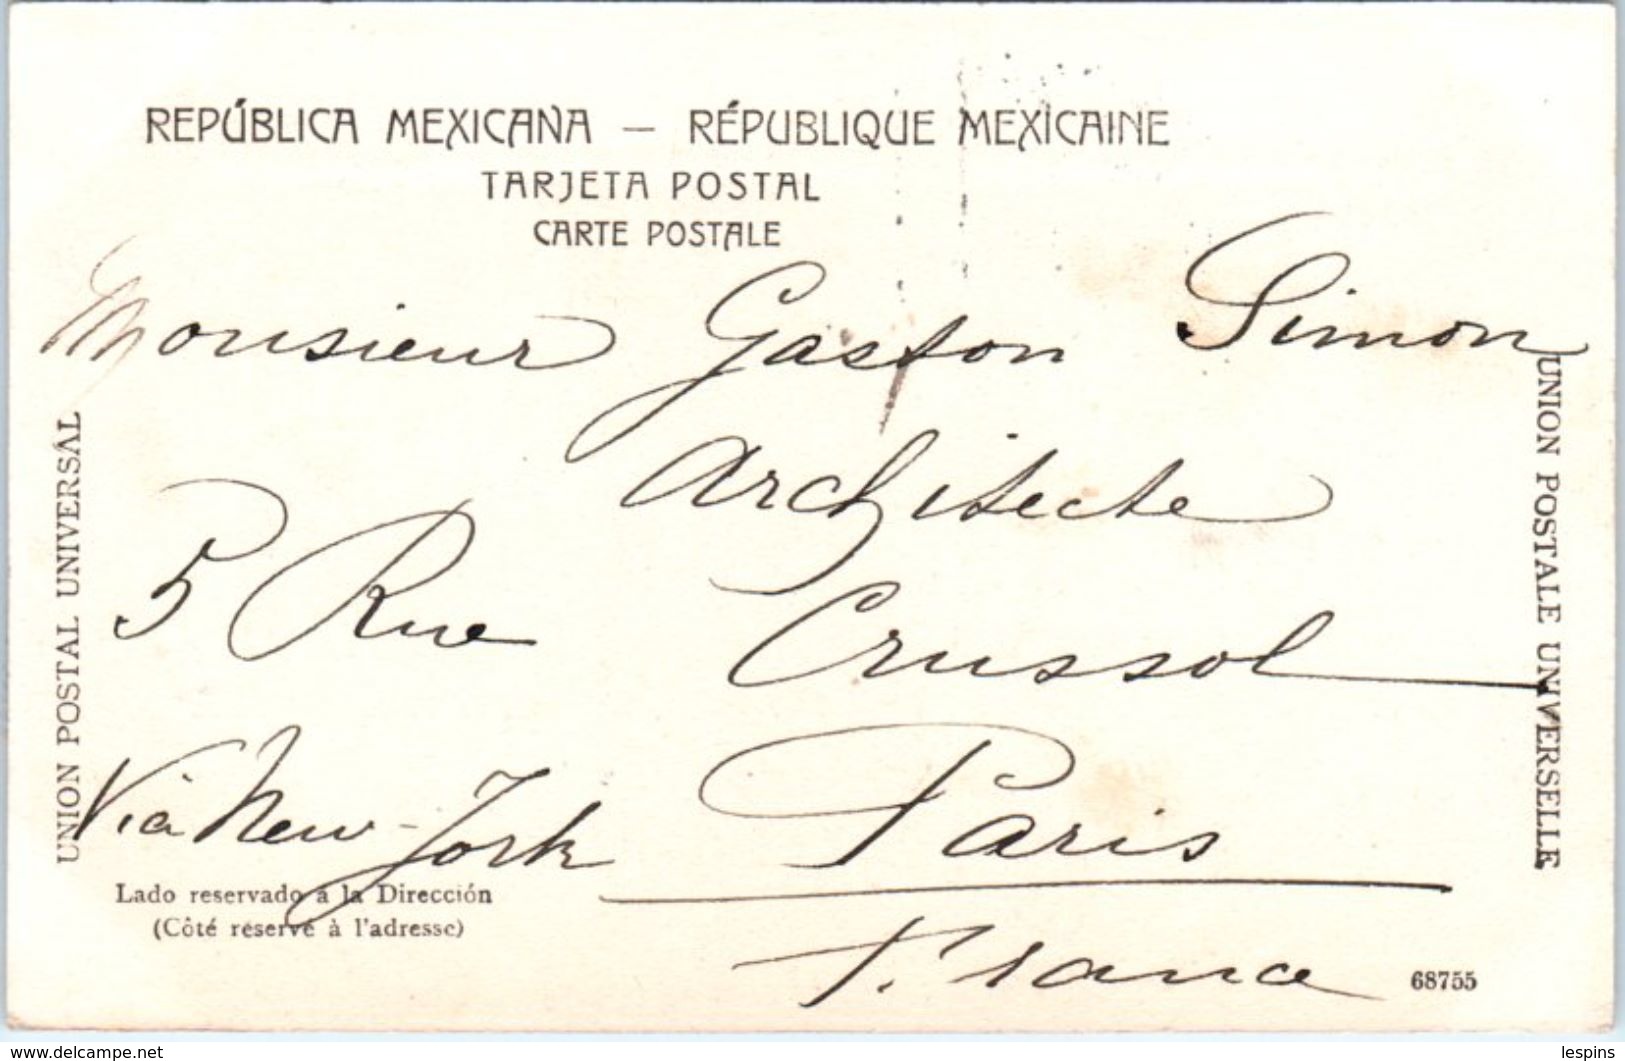 REPÚBLICA MEXICANA — RÉPUBLIQUE MEXICAINE
TARJETA POSTAL
CARTE POSTALE
Monsieur Gaston Simon
Architecte
5 Rue Crussol
Via New-York Paris
France
UNION POSTAL UNIVERSAL
UNION POSTALE UNIVERSELLE
Lado reservado á la Dirección
(Côté réservé à l'adresse)
68755
delcampe.net
lespins